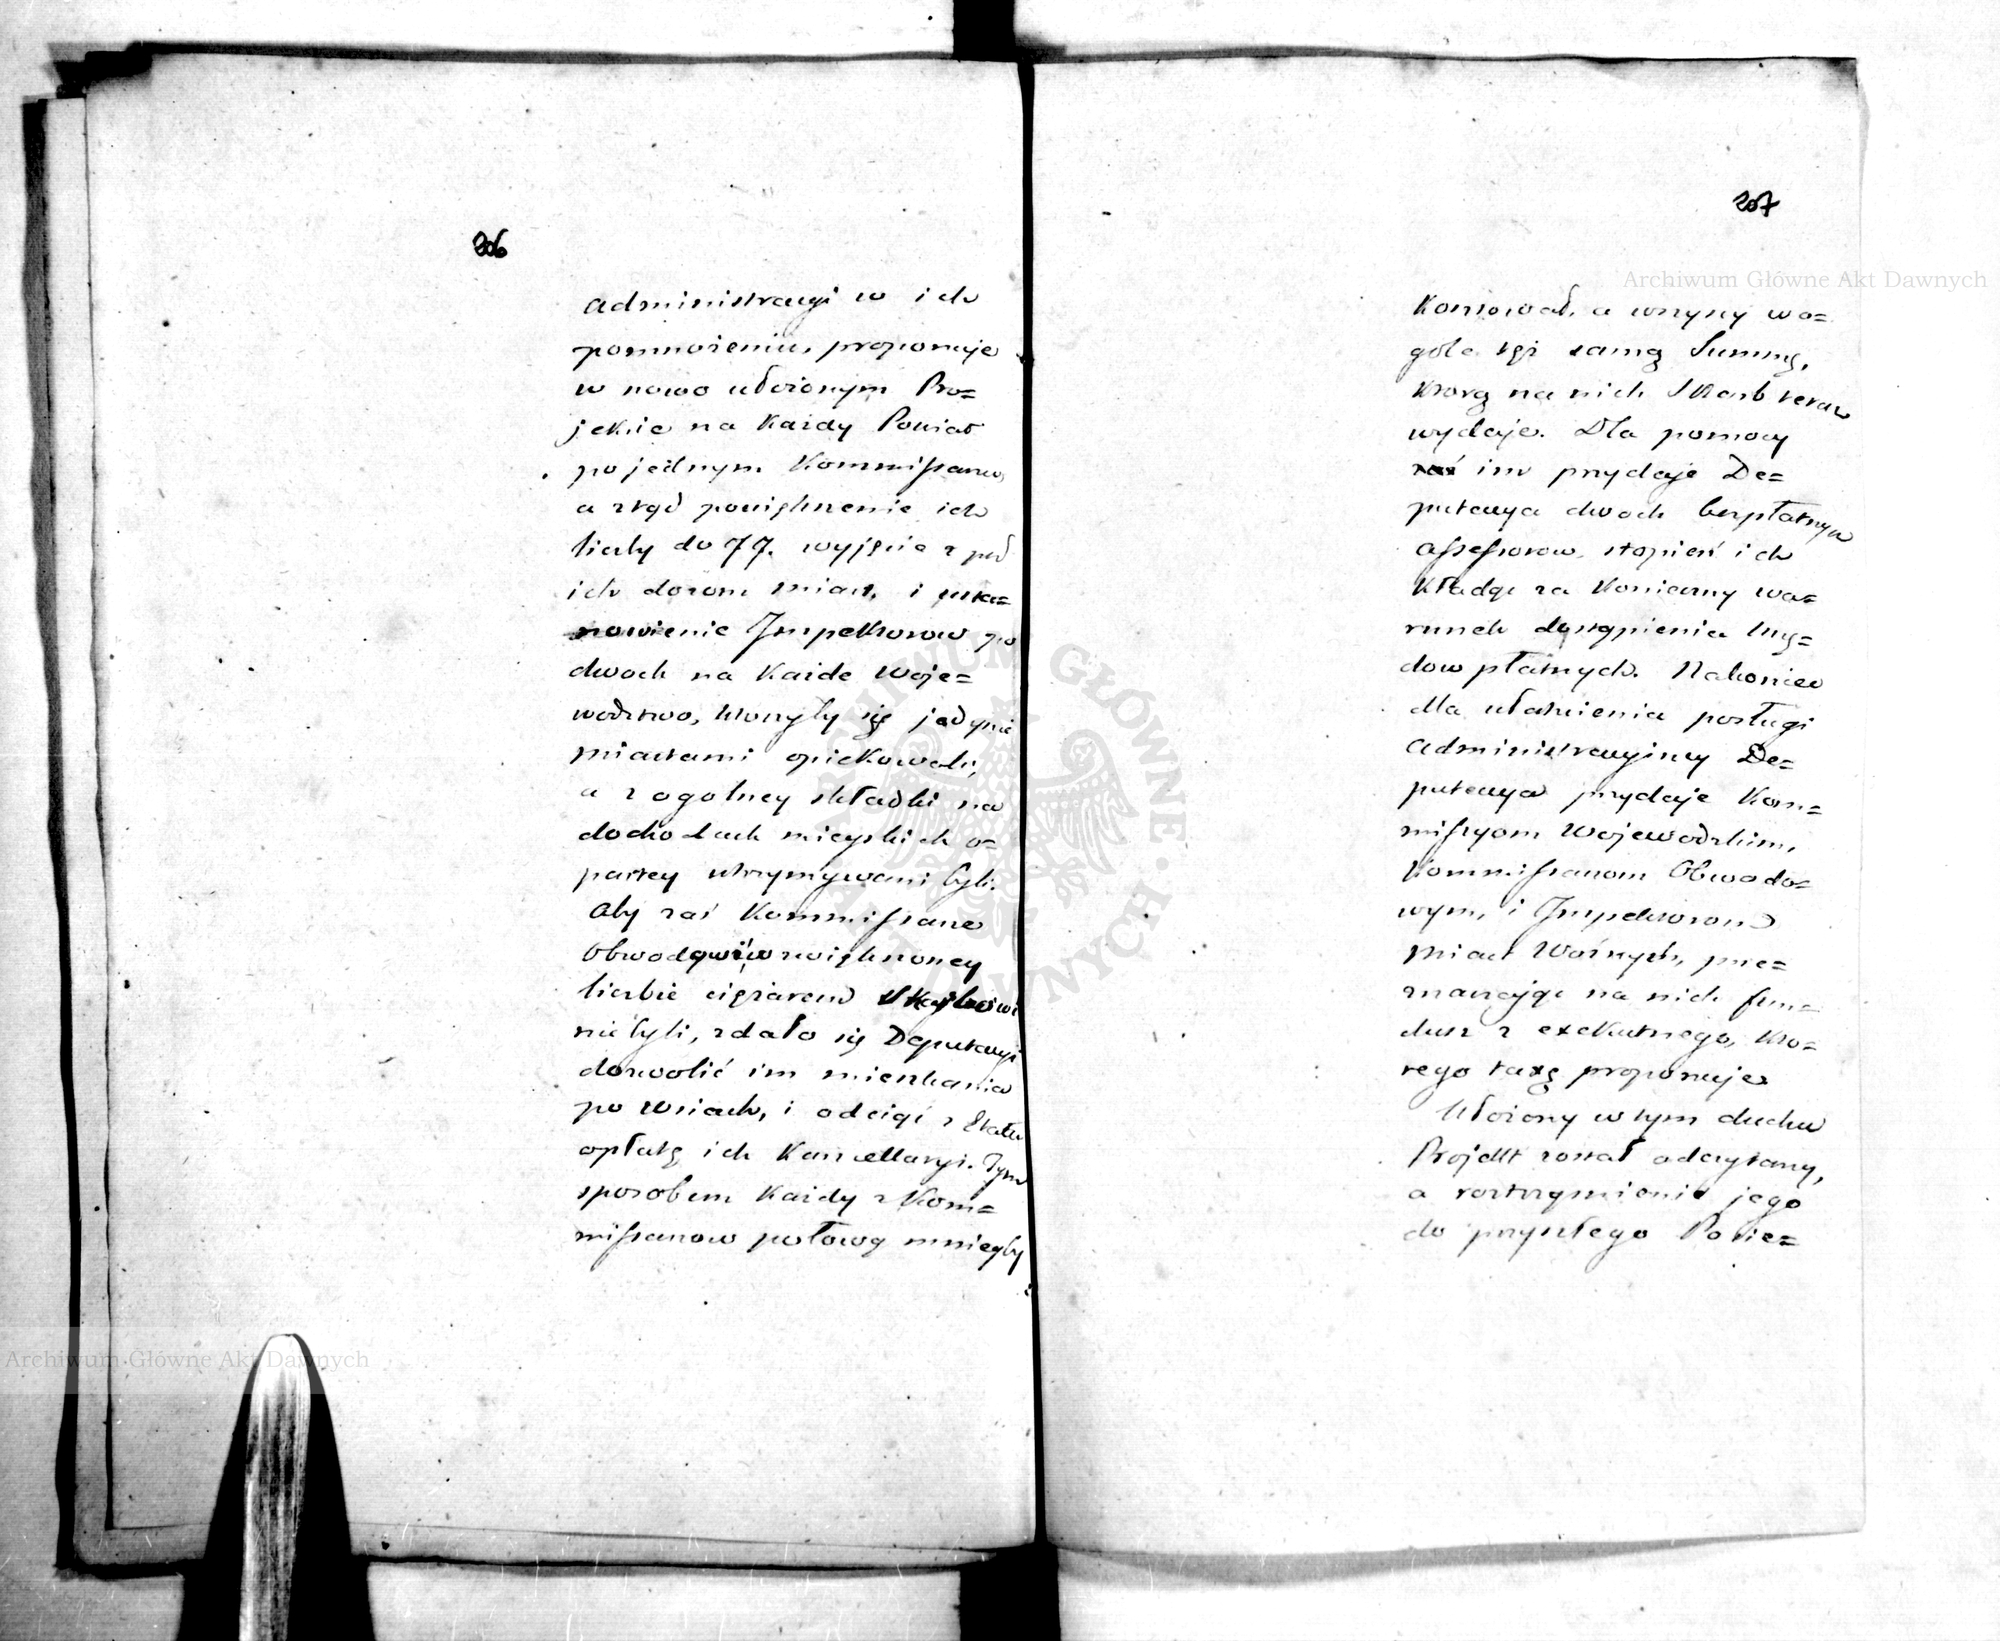 206
administracyi w ich
pomnożeniu, proponuje
w nowo ułożonym Pro=
jekcie na każdy Powiat
po jednym Kommissarzu,
a ztąd powiększenie ich
liczby do 77. wyjęcie z pod
ich dozoru miast, i usta=
nowienie Inspektorow po
dwoch na każde Woje=
wodztwo, ktorzyby się jedynie
miastami opiekowali,
a z ogolney składki na
dochodach mieyskich o=
partey utrzymywani byli.
Aby zaś Kommissarze
Obwodowi w zwiększoney
liczbie ciężarem Skarbowi
nie byli, zdało się Deputacyi
dozwolić im mieszkania
po wsiach, i odciąć z Etatu
opłatę ich Kancellaryi. Tym
sposobem każdy z Kom=
missarzow połowę mnieyby
207
Archiwum Główne Akt Dawnych
kosztował, a wszyscy wo=
gole tęż samą Summę,
ktorą na nich Skarb teraz
wydaje. Dla pomocy
zaś im przydaje De=
putacya dwoch bezpłatnych
assessorow, stopień ich
kładąc za konieczny wa=
runek dostąpienia Urzę=
dow płatnych. Nakoniec
dla ułatwienia posługi
administracyiney De=
putacya przydaje Kom=
missyom Wojewodzkim,
Kommissarzom Obwodo=
wym, i Inspektorom
miast Woźnych, prze=
znaczając na nich fun=
dusz z exekutnego, kto=
rego taxę proponuje.
Ułożony w tym duchu
Projekt został odczytany,
a roztrząśnienie jego
do przyszłego Posie=
Archiwum Główne Akt Dawnych